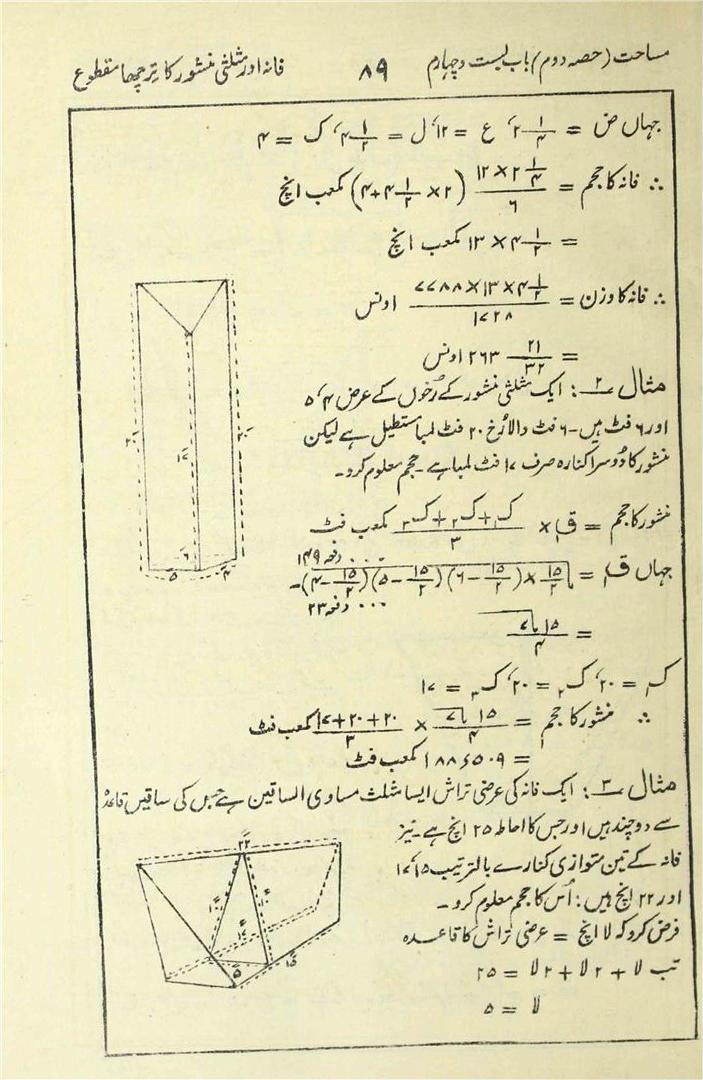 مساحت (حصہ دوم) باب بست و چہارم ۸۹ فانہ اور مثلثی منشور کا ترچھا مقطوع
جہاں ض = ۲ ۱/۴، ع = ۱۲، ل = ۴ ۱/۲، ک = ۴
∴ فانہ کا حجم = (۱۲ × ۲ ۱/۴)/۶ (۲ × ۴ ۱/۲ + ۴) مکعب انچ
= ۴ ۱/۲ × ۱۳ مکعب انچ
∴ فانہ کا وزن = (۴ ۱/۲ × ۱۳ × ۷۷۸۸)/۱۷۲۸ اونس
= ۲۶۳ ۲۱/۳۲ اونس
مثال ۲: ایک مثلثی منشور کے رُخوں کے عرض ۴، ۵
اور ۶ فٹ ہیں۔ ۶ فٹ والا رُخ ۲۰ فٹ لمبا مستطیل ہے لیکن
منشور کا دُوسرا کنارہ صرف ۱۷ فٹ لمبا ہے۔ حجم معلوم کرو۔
منشور کا حجم = ق × (ک۱ + ک۲ + ک۳)/۳ مکعب فٹ
... دفعہ ۱۴۹
جہاں ق = √(۱۵/۲ × (۱۵/۲ − ۶)(۱۵/۲ − ۵)(۱۵/۲ − ۴))۔
... دفعہ ۲۳
= ۱۵√۷/۴
ک۱ = ۲۰، ک۲ = ۲۰، ک۳ = ۱۷
∴ منشور کا حجم = ۱۵√۷/۴ × (۲۰ + ۲۰ + ۱۷)/۳ مکعب فٹ
= ۱۸۸٫۵۰۹ مکعب فٹ
مثال ۳: ایک فانہ کی عرضی تراش ایسا مثلث مساوی الساقین ہے جس کی ساقیں قاعدہ
سے دو چند ہیں اور جس کا احاطہ ۲۵ انچ ہے۔ نیز
فانہ کے تین متوازی کنارے بالترتیب ۱۵، ۱۷
اور ۲۲ انچ ہیں: اُس کا حجم معلوم کرو۔
فرض کرو کہ لا انچ = عرضی تراش کا قاعدہ
تب لا + ۲ لا + ۲ لا = ۲۵
لا = ۵
۲۰
۱۷
۲۰
۶
۵
۴
۲۲
۱۰
۱۰
۵
۱۵